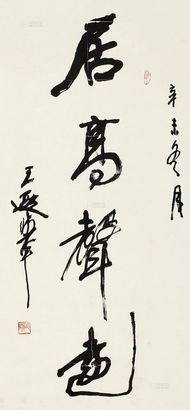 辛未冬月
居高聲遠
王遐舉